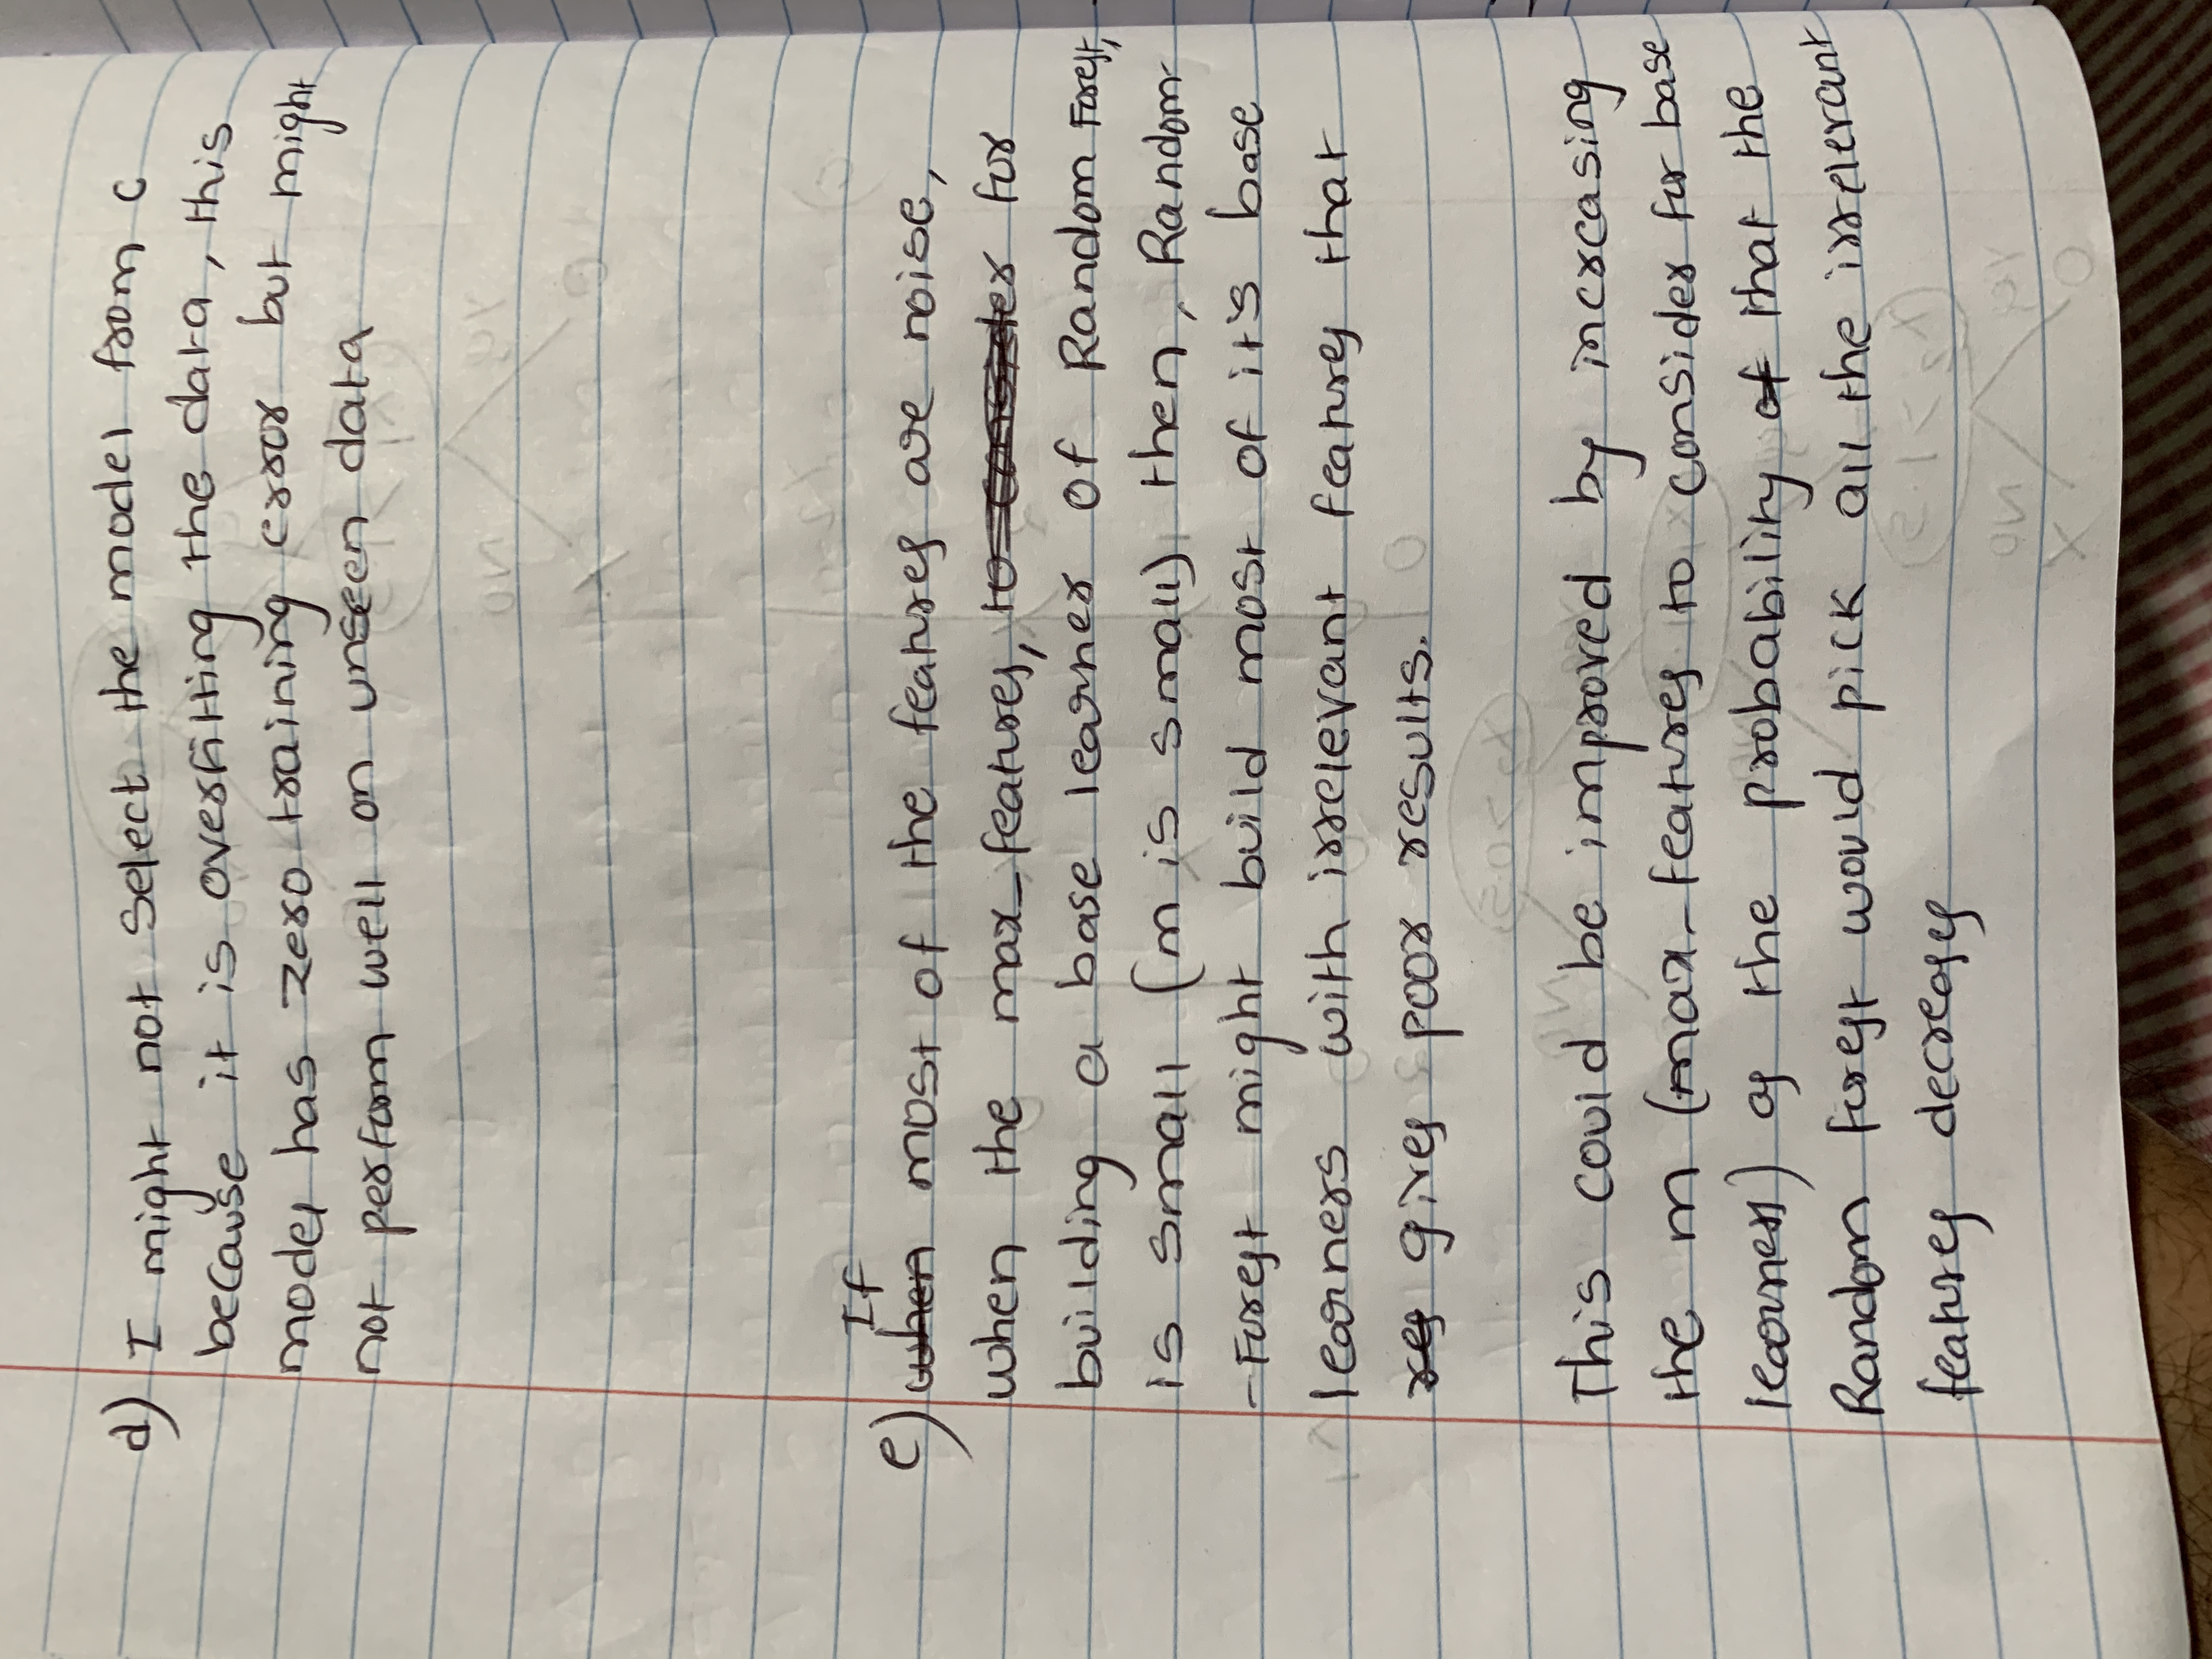 d) I might not select the model from c
because it is overfitting the data, this
model has zero training error but might
not perform well on unseen data
If
e) when most of the features are noise,
when the max_features, to consider for
building a base learner of Random Forest,
is small (m is small) then, Random-
-Forest might build most of it's base
learners with irrelevant features that
res gives poor results.
This could be improved by increasing
the m (max_features to consider for base
learners) as the probability of that the
Random forest would pick all the irrelevant
features decreases